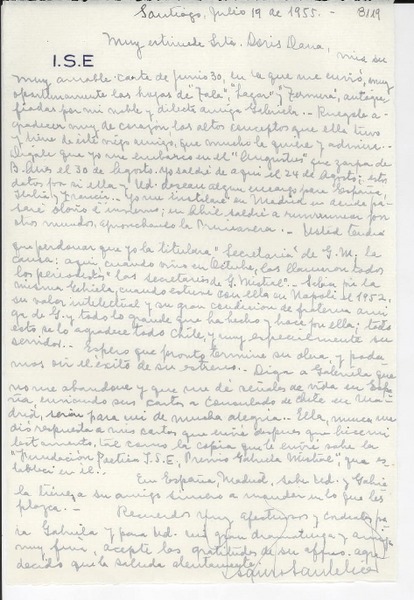 Santiago, Julio 19 de 1955.- 8119
Muy estimada Srta. Doris Dana,
I.S.E
muy amable carta de Junio 30, en la que me envió, muy
oportunamente las hojas de "Tala", "Lagar" y "Ternura", autogra-
fiadas por mi noble y dilecta amiga Gabriela.- Ruégole a-
gradecer muy de corazón los altos conceptos que ella tuvo
y tiene de este viejo amigo, que mucho la quiere y admira.-
Dígale que yo me embarco en el que zarpa de
B. Aires el 30 de Agosto. Yo saldré de aquí el 24 de Agosto; estos
datos por si ella y Ud. desean algún encargo para España,
Italia y Francia.- Yo me instalaré en Madrid en donde pa-
saré otoño e invierno; en Abril saldré a por
otros mundos, aprovechando la Primavera.- Usted tendrá
que perdonar que yo la titulara "Secretaria" de G.M. la
causa: aquí, cuando vino en Octubre, las llamaron todos
los periodistas "las secretarias de G. Mistral".- Sabía por la
misma Gabriela, cuando estuve con ella en Napoli el 1952,
su valor intelectual y su gran condición de fraterna ami-
ga de G., y todo lo grande que ha hecho y hace por ella; todo
esto se lo agradece todo Chile, y muy especialmente su
servidor.- Espero que pronto termine su obra, y poda-
mos oír el éxito de su estreno.- Diga a Gabriela que
no me abandone y que me dé señales de vida en Espa-
ña, enviando sus cartas a Consulado de Chile en Ma-
drid, serán para mí de mucha alegría.- Ella, nunca me
dió respuesta a mis cartas que envié después que hice mi
testamento, tal como la copia que le envié sobre la
"Fundación Poética I.S.E, Premio Gabriela Mistral" que es-
tablecí en él.-
En España, Madrid, sabe Ud. y Gabrie-
la tienen a su amigo sincero a mandar en lo que les
plazca.-
Recuerdos muy afectuosos y cordiales pa-
ra Gabriela y para Ud. mi gran dramaturga y amiga
muy fina, acepte las gratitudes de su affmo. agra-
decido que la saluda atentamente: